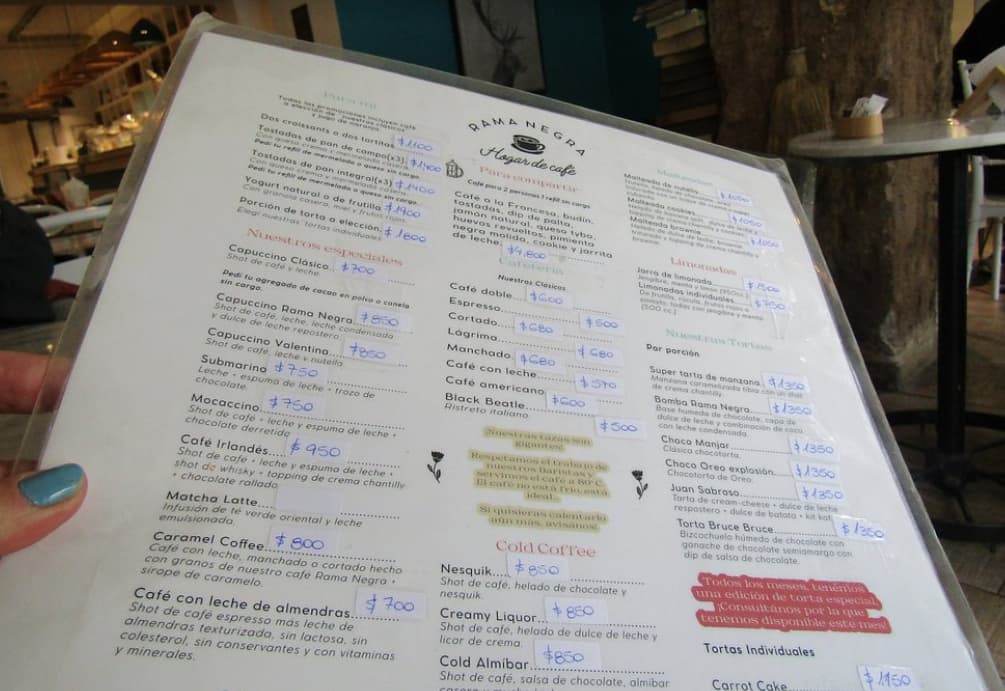 Para mí
Todas las promociones incluyen café
a elección de nuestros clásicos
y jugo de naranja
Dos croissants o dos tortitas $1100
Tostadas de pan de campo(x3). $1400
Con queso crema y mermelada casera.
Pedí tu refil de mermelada o queso sin cargo.
Tostadas de pan integral(x3) $1400
Con queso crema y mermelada casera.
Pedí tu refil de mermelada o queso sin cargo.
Yogurt natural o de frutilla $1900
Con granola casera, miel y frutos rojos.
Porción de torta a elección. $1800
Elegí nuestras tortas individuales
Nuestros especiales
Capuccino Clásico. $700
Shot de café y leche.
Pedí tu agregado de cacao en polvo o canela
sin cargo.
Capuccino Rama Negra $850
Shot de café, leche, leche condensada
y dulce de leche repostero
Capuccino Valentino $850
Shot de café, leche y nutella.
Submarino $750
Leche + espuma de leche + trozo de
chocolate.
Mocaccino $750
Shot de café + leche y espuma de leche +
chocolate derretido
Café Irlandés $950
Shot de café + leche y espuma de leche +
shot de whisky + topping de crema chantilly
+ chocolate rallado
Matcha Latte
Infusión de té verde oriental y leche
emulsionada.
Caramel Coffee $800
Café con leche, manchado o cortado hecho
con granos de nuestro cafe Rama Negra +
sirope de caramelo.
Café con leche de almendras $700
Shot de café espresso más leche de
almendras texturizada, sin lactosa, sin
colesterol, sin conservantes y con vitaminas
y minerales.
RAMA NEGRA
Hogar de café
Para compartir
Café para 2 personas / refil sin cargo.
Café a la Francesa, budín,
tostadas, dip de palta,
jamón natural, queso tybo,
huevos revueltos, pimienta
negra molida, cookie y jarrita
de leche. $4.800
Cafetería
Nuestros Clásicos
Café doble $600
Espresso $500
Cortado $680
Lágrima $680
Manchado $680
Café con leche $590
Café americano $600
Black Beatle $500
Ristreto italiano
¡Nuestras tazas son
gigantes!
Respetamos el trabajo de
nuestros baristas y
servimos el café a 80°C.
El café no está frío, está
ideal..
Si quisieras calentarlo
aún más, avisanos.
Cold Coffee
Nesquik $850
Shot de café, helado de chocolate y
nesquik.
Creamy Liquor $850
Shot de café, helado de dulce de leche y
licor de crema.
Cold Almíbar $850
Shot de café, salsa de chocolate, almíbar
Malteadas
Malteada de nutella $1050
Malteada cookies $1050
Malteada brownie $1050
brownie.
Limonadas
Jarra de limonada $1500
Jengibre, menta y limón
Limonadas individuales $750
De frutilla, rúcula, frutos rojos o
(500 cc.)
Nuestras Tortas
Por porción
Super tarta de manzana $1350
Manzana caramelizada tibia con un shot
de crema chantly.
Bomba Rama Negra $1350
Base humeda de chocolate, capa de
dulce de leche y combinación de coco
con leche condensada.
Choco Manjar $1350
Clásica chocotorta.
Choco Oreo explosión $1350
Chocotorta de Oreo.
Juan Sabroso $1350
Tarta de cream-cheese + dulce de leche
respostero + dulce de batata + kit kat
Torta Bruce Bruce $1350
Bizcochuelo húmedo de chocolate con
ganache de chocolate semiamargo con
dip de salsa de chocolate.
Todos los meses, tenémos
una edición de torta especial.
¡Consultános por la que
tenemos disponible este mes!
Tortas Individuales
Carrot Cake $1150